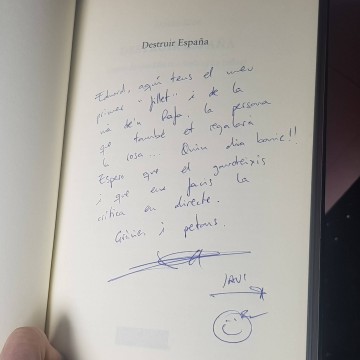 Destruir España
Eduard, aquí tens el meu
primer "fillet" i de la
mà d'en Rafa, la persona
que també et regalarà
la rosa... Quin dia bonic!!
Espero que el gaudeixis
i que em facis la
crítica en directe.
Gràcies i petons.
JAVI